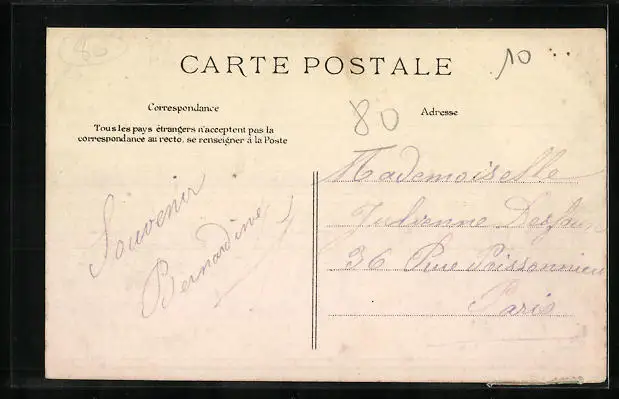 80
CARTE POSTALE
10
Correspondance
80
Adresse
Tous les pays étrangers n'acceptent pas la
correspondance au recto, se renseigner à la Poste
Souvenir
Bernardine
Mademoiselle
36 Rue Poissonnière
Paris